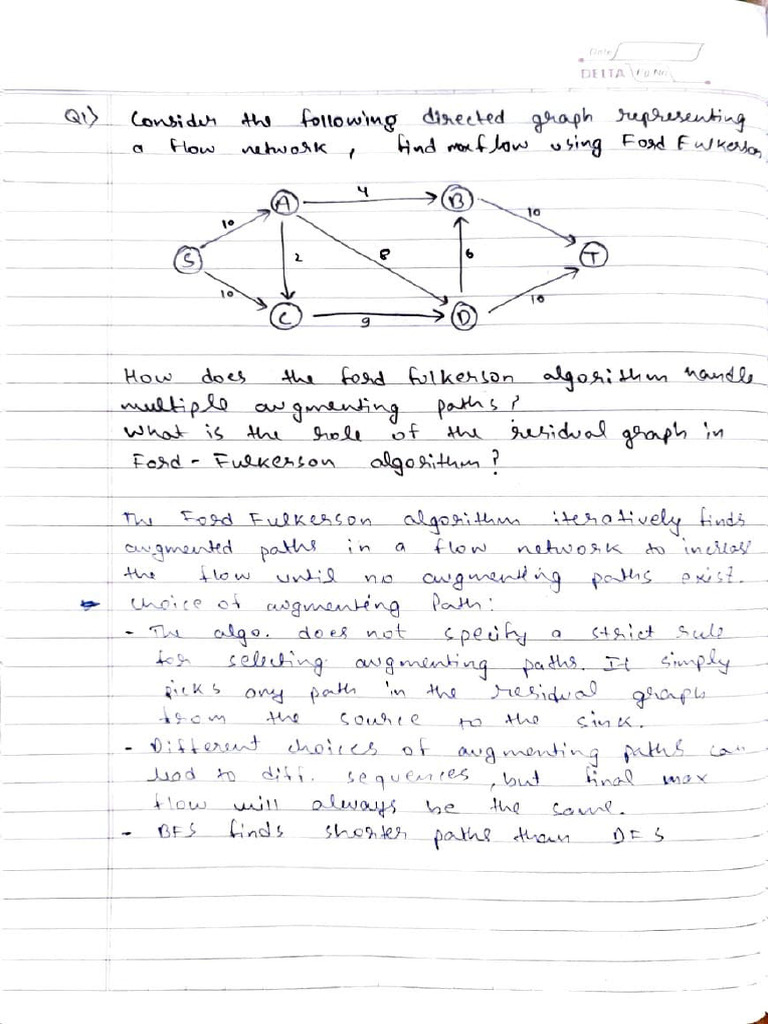 Date
DELTA Pg No.
Q1) Consider the following directed graph representing
a flow network, find maxflow using Ford Fulkerson
4
A
B
10
10
S
2
8
6
T
10
10
C
9
D
How does the ford fulkerson algorithm handle
multiple augmenting paths?
What is the role of the residual graph in
Ford-Fulkerson algorithm?
The Ford Fulkerson algorithm iteratively finds
augmented paths in a flow network to increase
the flow until no augmenting paths exist.
Choice of augmenting Path:
- The algo. does not specify a strict rule
for selecting augmenting paths. It simply
picks any path in the residual graph
from the source to the sink.
- Different choices of augmenting paths can
lead to diff. sequences, but final max
flow will always be the same.
- BFS finds shorter paths than DFS